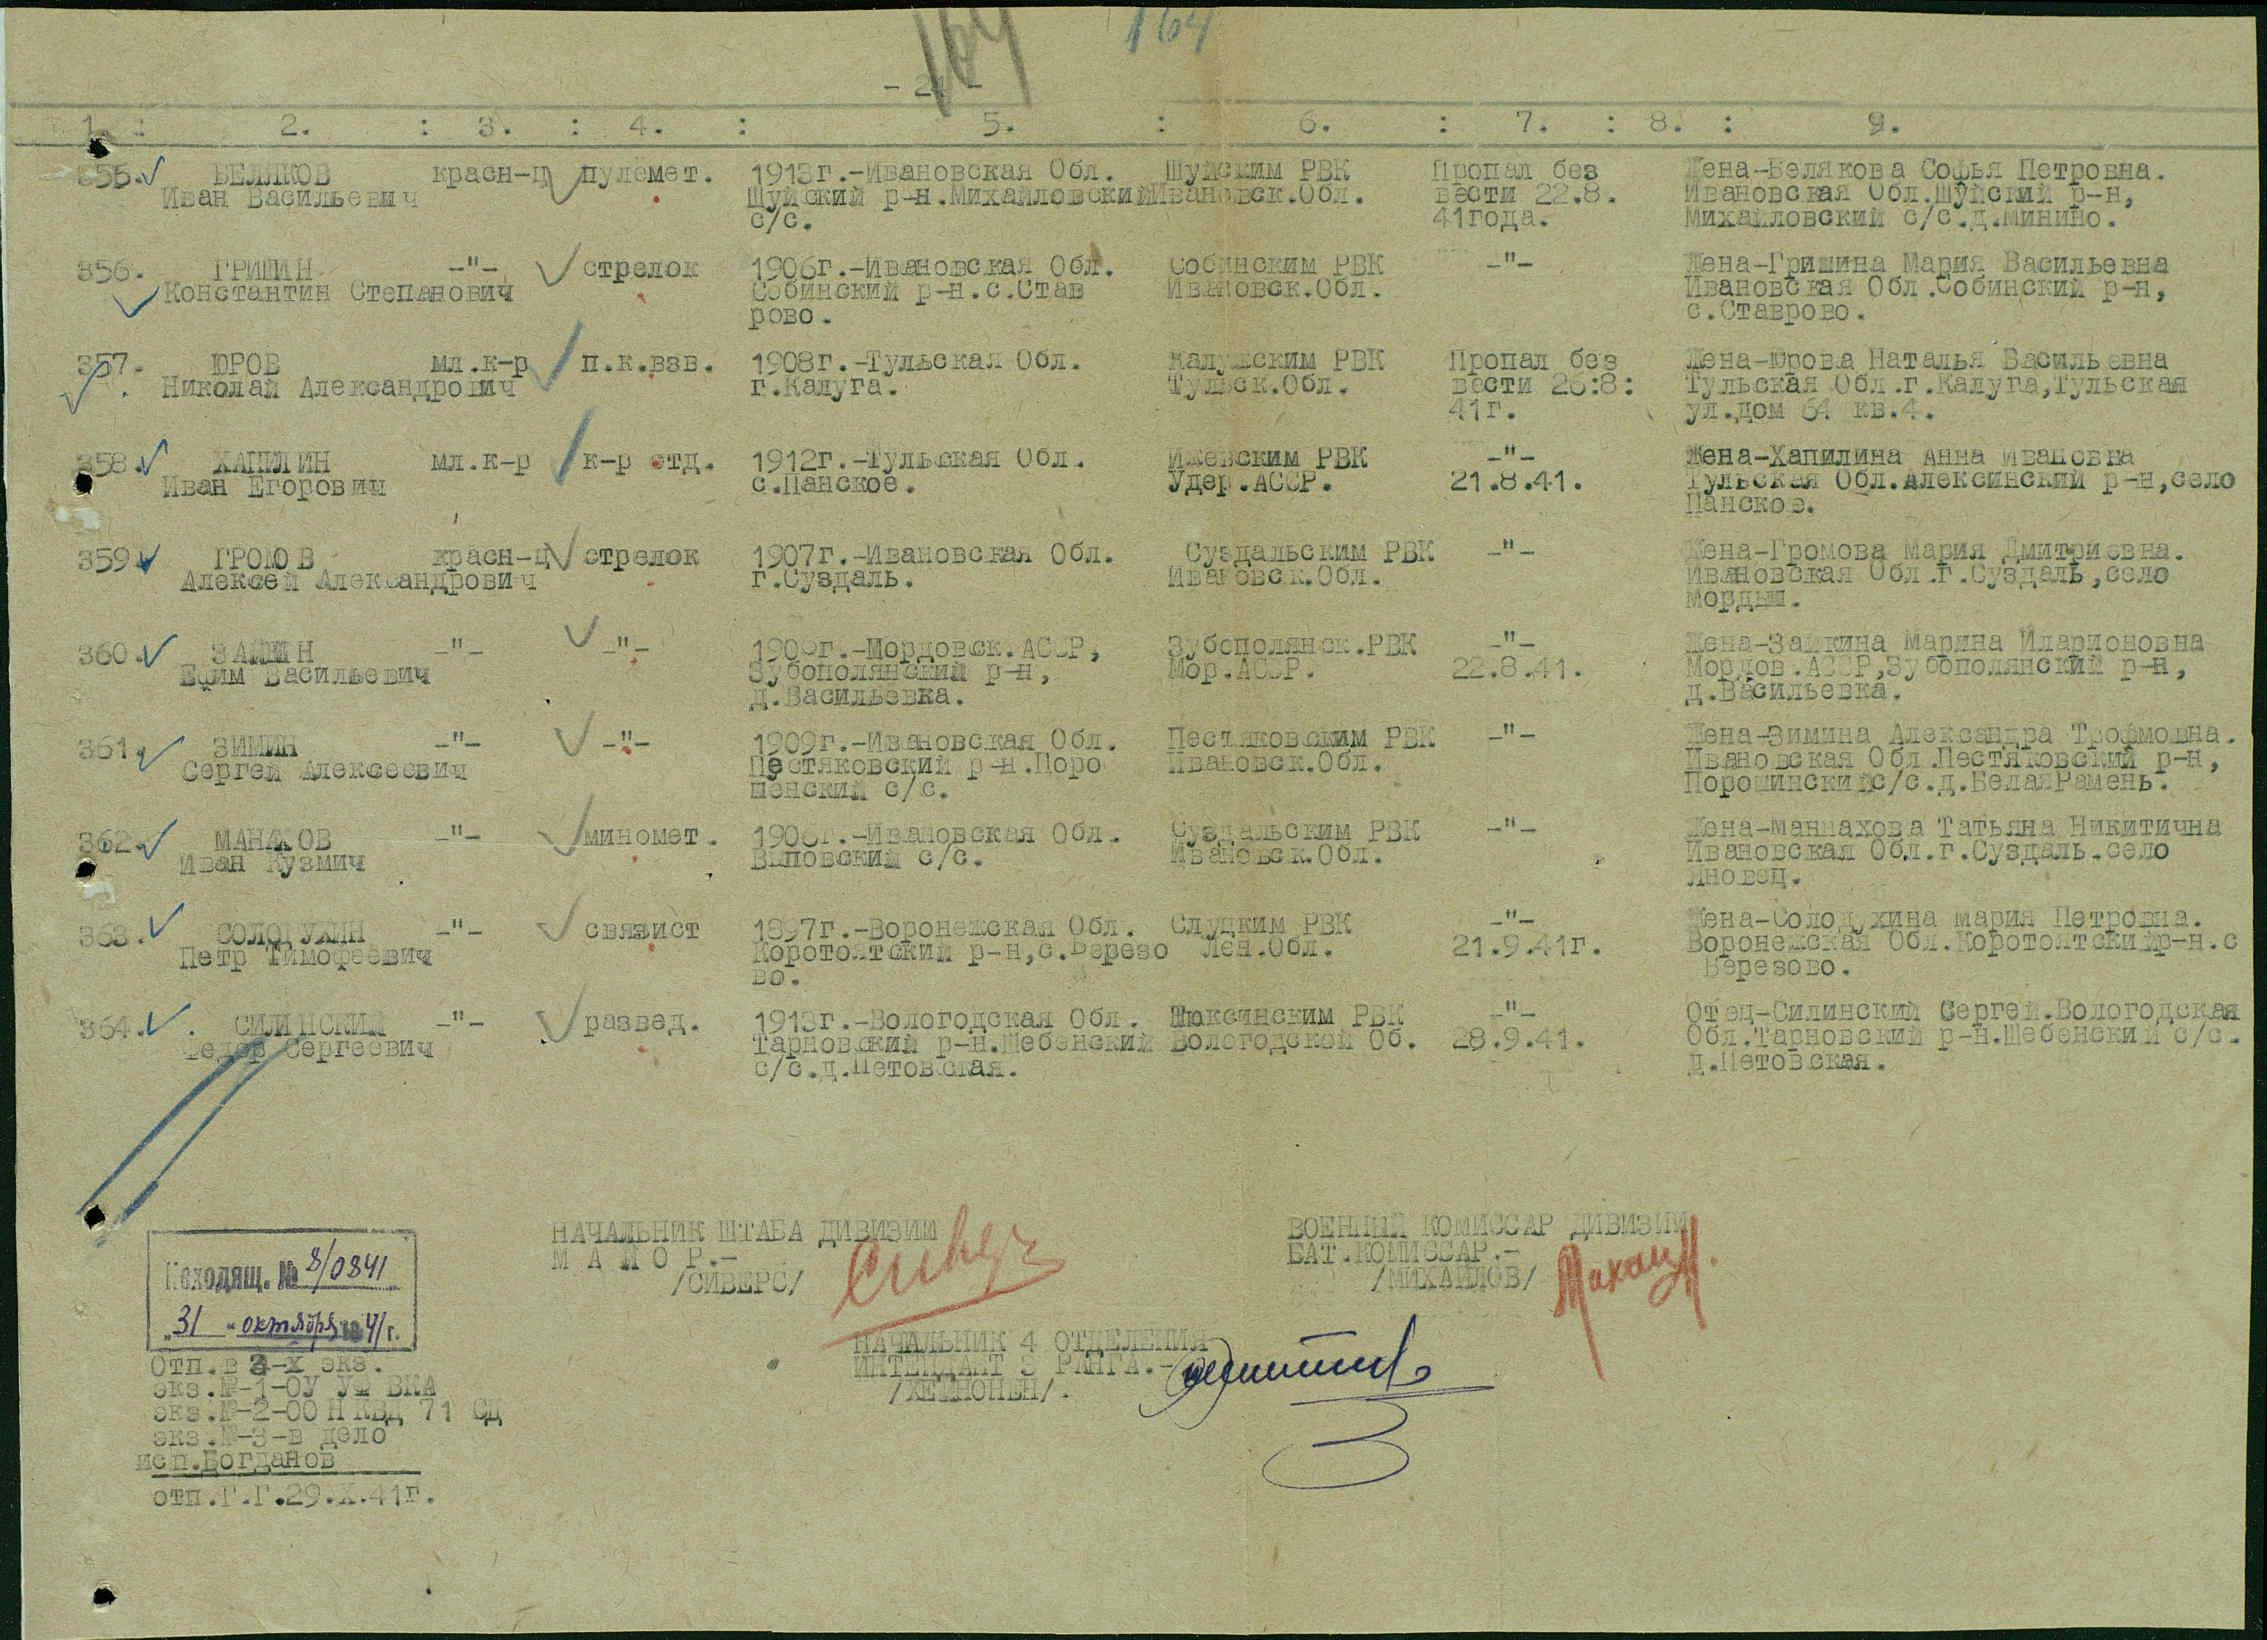 164 164
- 24 -
1. : 2. : 3. : 4. : 5. : 6. : 7. : 8. : 9.
355. БЕЛЯКОВ красн-ц пулемет. 1913г.-Ивановская Обл. Шуйским РВК Пропал без Жена-Белякова Софья Петровна.
Иван Васильевич Шуйский р-н.Михайловский Ивановск.Обл. вести 22.8. Ивановская Обл.Шуйский р-н,
с/с. 41года. Михайловский с/с.д.Минино.
356. ГРИШИН -"- стрелок 1906г.-Ивановская Обл. Собинским РВК -"- Жена-Гришина Мария Васильевна
Константин Степанович Собинский р-н.с.Став Ивановск.Обл. Ивановская Обл.Собинский р-н,
рово. с.Ставрово.
357. ЮРОВ мл.к-р п.к.взв. 1908г.-Тульская Обл. Калужским РВК Пропал без Жена-Юрова Наталья Васильевна
Николай Александрович г.Калуга. Тульск.Обл. вести 26:8: Тульская Обл.г.Калуга,Тульская
41г. ул.дом 64 кв.4.
358. ХАПИЛИН мл.к-р к-р отд. 1912г.-Тульская Обл. Ижевским РВК -"- Жена-Хапилина Анна Ивановна
Иван Егорович с.Панское. Удер.АССР. 21.8.41. Тульская Обл.Алексинский р-н,село
Панское.
359. ГРОМОВ красн-ц стрелок 1907г.-Ивановская Обл. Суздальским РВК -"- Жена-Громова Мария Дмитриевна.
Алексей Александрович г.Суздаль. Ивановск.Обл. Ивановская Обл.г.Суздаль,село
Мордыш.
360. ЗАЙКИН -"- -"- Мордовск.АССР, Зубополянск.РВК -"- Жена-Зайкина Марина Иларионовна
Ефим Васильевич Зубополянский р-н, Мор.АССР. 22.8.41. Мордов.АССР,Зубополянский р-н,
д.Васильевка. д.Васильевка.
361. ЗИМИН -"- -"- 1909г.-Ивановская Обл. Пестяковским РВК -"- Жена-Зимина Александра Трофмовна.
Сергей Алексеевич Пестяковский р-н.Поро Ивановск.Обл. Ивановская Обл.Пестяковский р-н,
шенский с/с. Порошинский с/с.д.БелаяРамень.
362. МАНАХОВ -"- миномет. Ивановская Обл. Суздальским РВК -"- Жена-Маннахова Татьяна Никитична
Иван Кузмич с/с. Ивановск.Обл. Ивановская Обл.г.Суздаль.село
Яновец.
363. СОЛОДУХИН -"- связист 1897г.-Воронежская Обл. Слуцким РВК -"- Жена-Солодухина Мария Петровна.
Петр Тимофеевич Коротоятский р-н,с.Березо Лен.Обл. 21.9.41г. Воронежская Обл.Коротоятскийр-н.с
во. Березово.
364. СИЛИНСКИЙ -"- развед. 1913г.-Вологодская Обл. Шюксинским РВК -"- Отец-Силинский Сергей.Вологодская
Федор Сергеевич Тарновский р-н.Шебенский Вологодской Об. 28.9.41. Обл.Тарновский р-н.Шебенский с/с.
с/с.д.Петовская. д.Петовская.
НАЧАЛЬНИК ШТАБА ДИВИЗИИ ВОЕННЫЙ КОМИССАР ДИВИЗИИ
М А Й О Р.- БАТ.КОМИССАР.-
/СИВЕРС/ Сиверс /МИХАЙЛОВ/
Исходящ. № 8/0841
"31" октября 1941г.
НАЧАЛЬНИК 4 ОТДЕЛЕНИЯ
ИНТЕНДАНТ 3 РАНГА.-
/ХЕЙНОНЕН/.
Отп.в 3-х экз.
экз.№-1-ОУ УФ ВКА
экз.№-2-ОО НКВД 71 СД
экз.№-3-в дело
исп.Богданов
отп.Г.Г.29.X.41г.